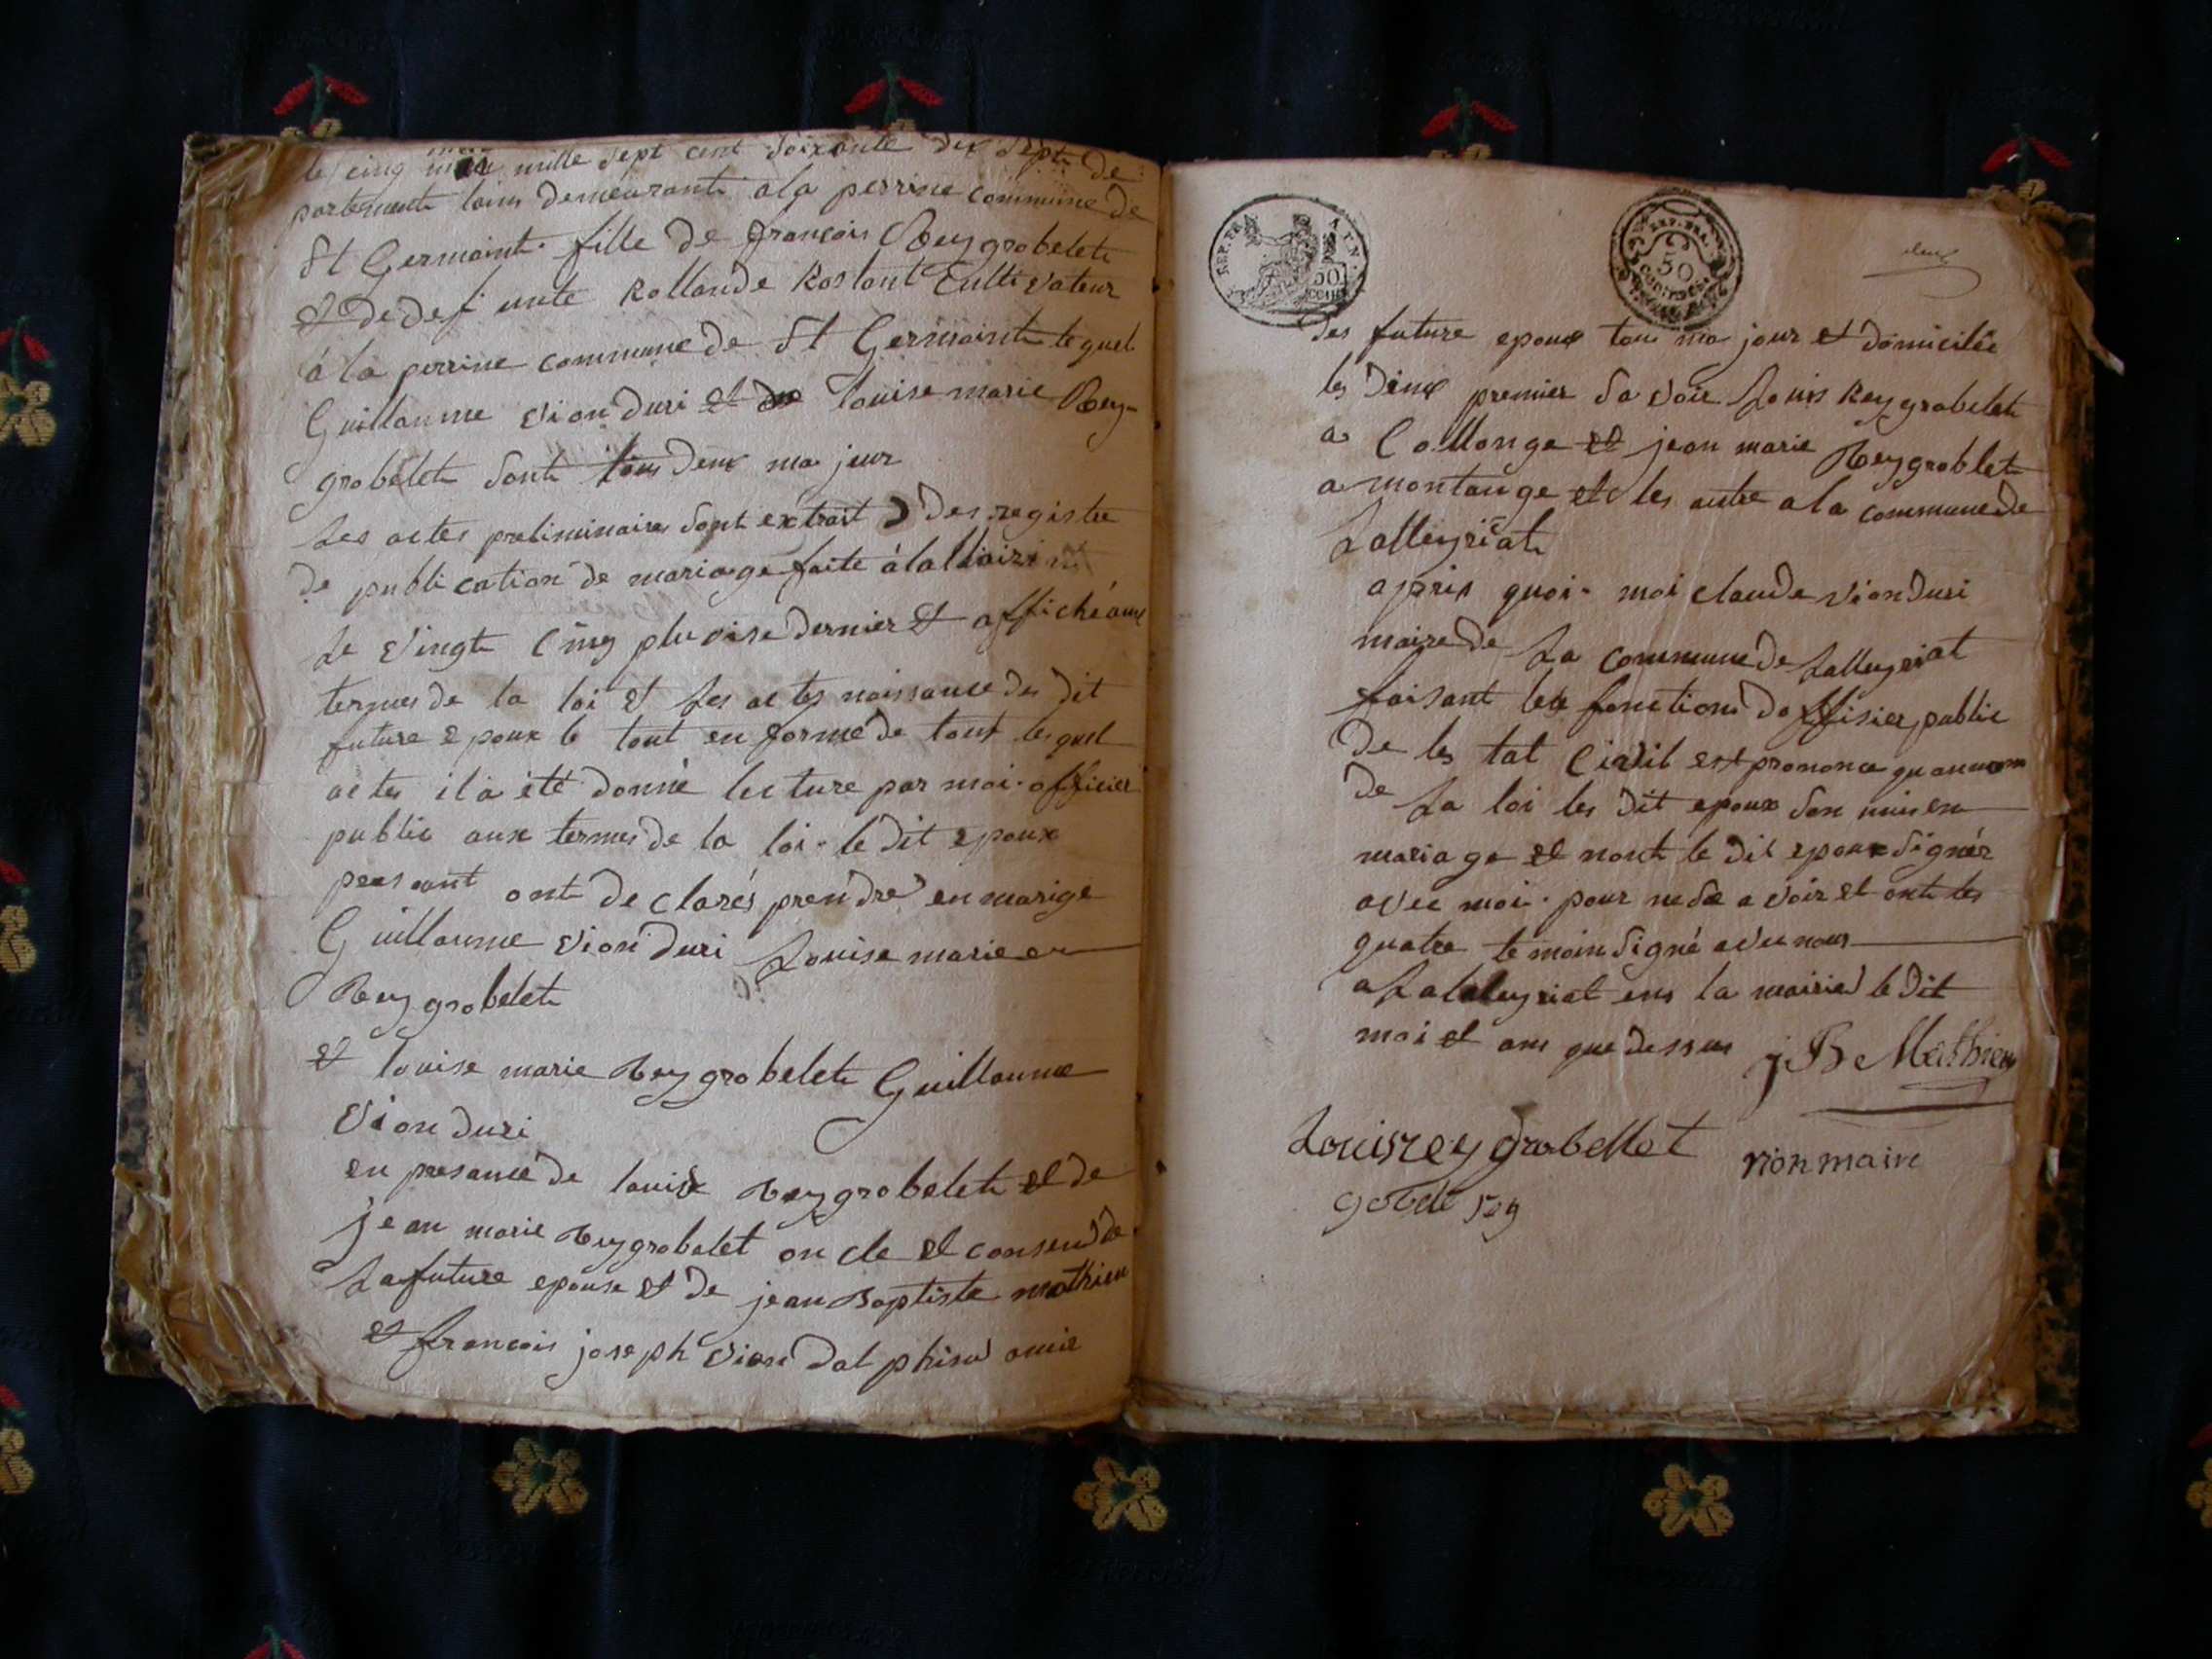 le cinq mai mille sept cent soixante dix sept de
partement lains demeurante a la perrine commune de
St Germaint fille de françois Reygrobelete
et de defunte Rollande Roslant Cultivateur
à la perrine commune de St Germainte lequel
Guillaume Vion duri et de louise marie Rey-
grobelete sont tous deux ma jeur
Les actes preliminaires sont extrait des registre
de publication de mariage faite à la Mairi
Le Vingt Cinq pluvoise dernier et affiché aux
termes de la loi et les actes naissance des dit
future epoux le tout en forme de tout lesquel
actes il a été donné lecture par moi officier
public aux termes de la loi le dit epoux
presant ont declarés prendre en marige
Guillaume Vion duri Louise marie
Rey grobelete
et louise marie Rey grobelete Guillaume
Vion duri
en presance de louis Rey grobelete et de
jean marie Reygrobelet oncle et
La future epouse et de jean Baptiste mathieu
et françois joseph Vion dalphin amie
REP. FRA
50
CENT
REP. FRA.
50
CENTIMES
des future epoux tous ma jour et domicilée
les deux premier sa voir Louis Rey grobelete
a Collonge et jean marie Reygroblet
a montange et les autre a la commune de
Lalleyriat
apris quoi moi claude Vion duri
maire de La commune de Lalleyriat
faisant les fonctions doffisier public
de les tat Civil est prononce quaunom
de La loi les dit epoux son unis en
mariage et nont le dit epoux signér
avec moi pour ne sa voir et onte les
quatre temoin signé avec nous
a Lalleyriat ens la mairie le dit
moi et ans que dessus
jB Mathieu
Louis rey grobellet
Vion maire